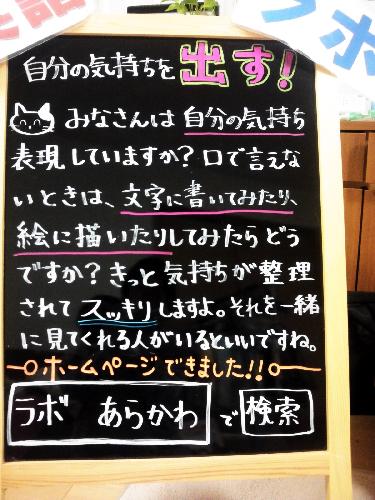 ラボ
自分の気持ちを出す!
みなさんは自分の気持ち
表現していますか?口で言えな
いときは、文字に書いてみたり、
絵に描いたりしてみたらどう
ですか?きっと気持ちが整理
されてスッキリしますよ。それを一緒
に見てくれる人がいるといいですね。
ホームページできました!!
ラボ あらかわで検索